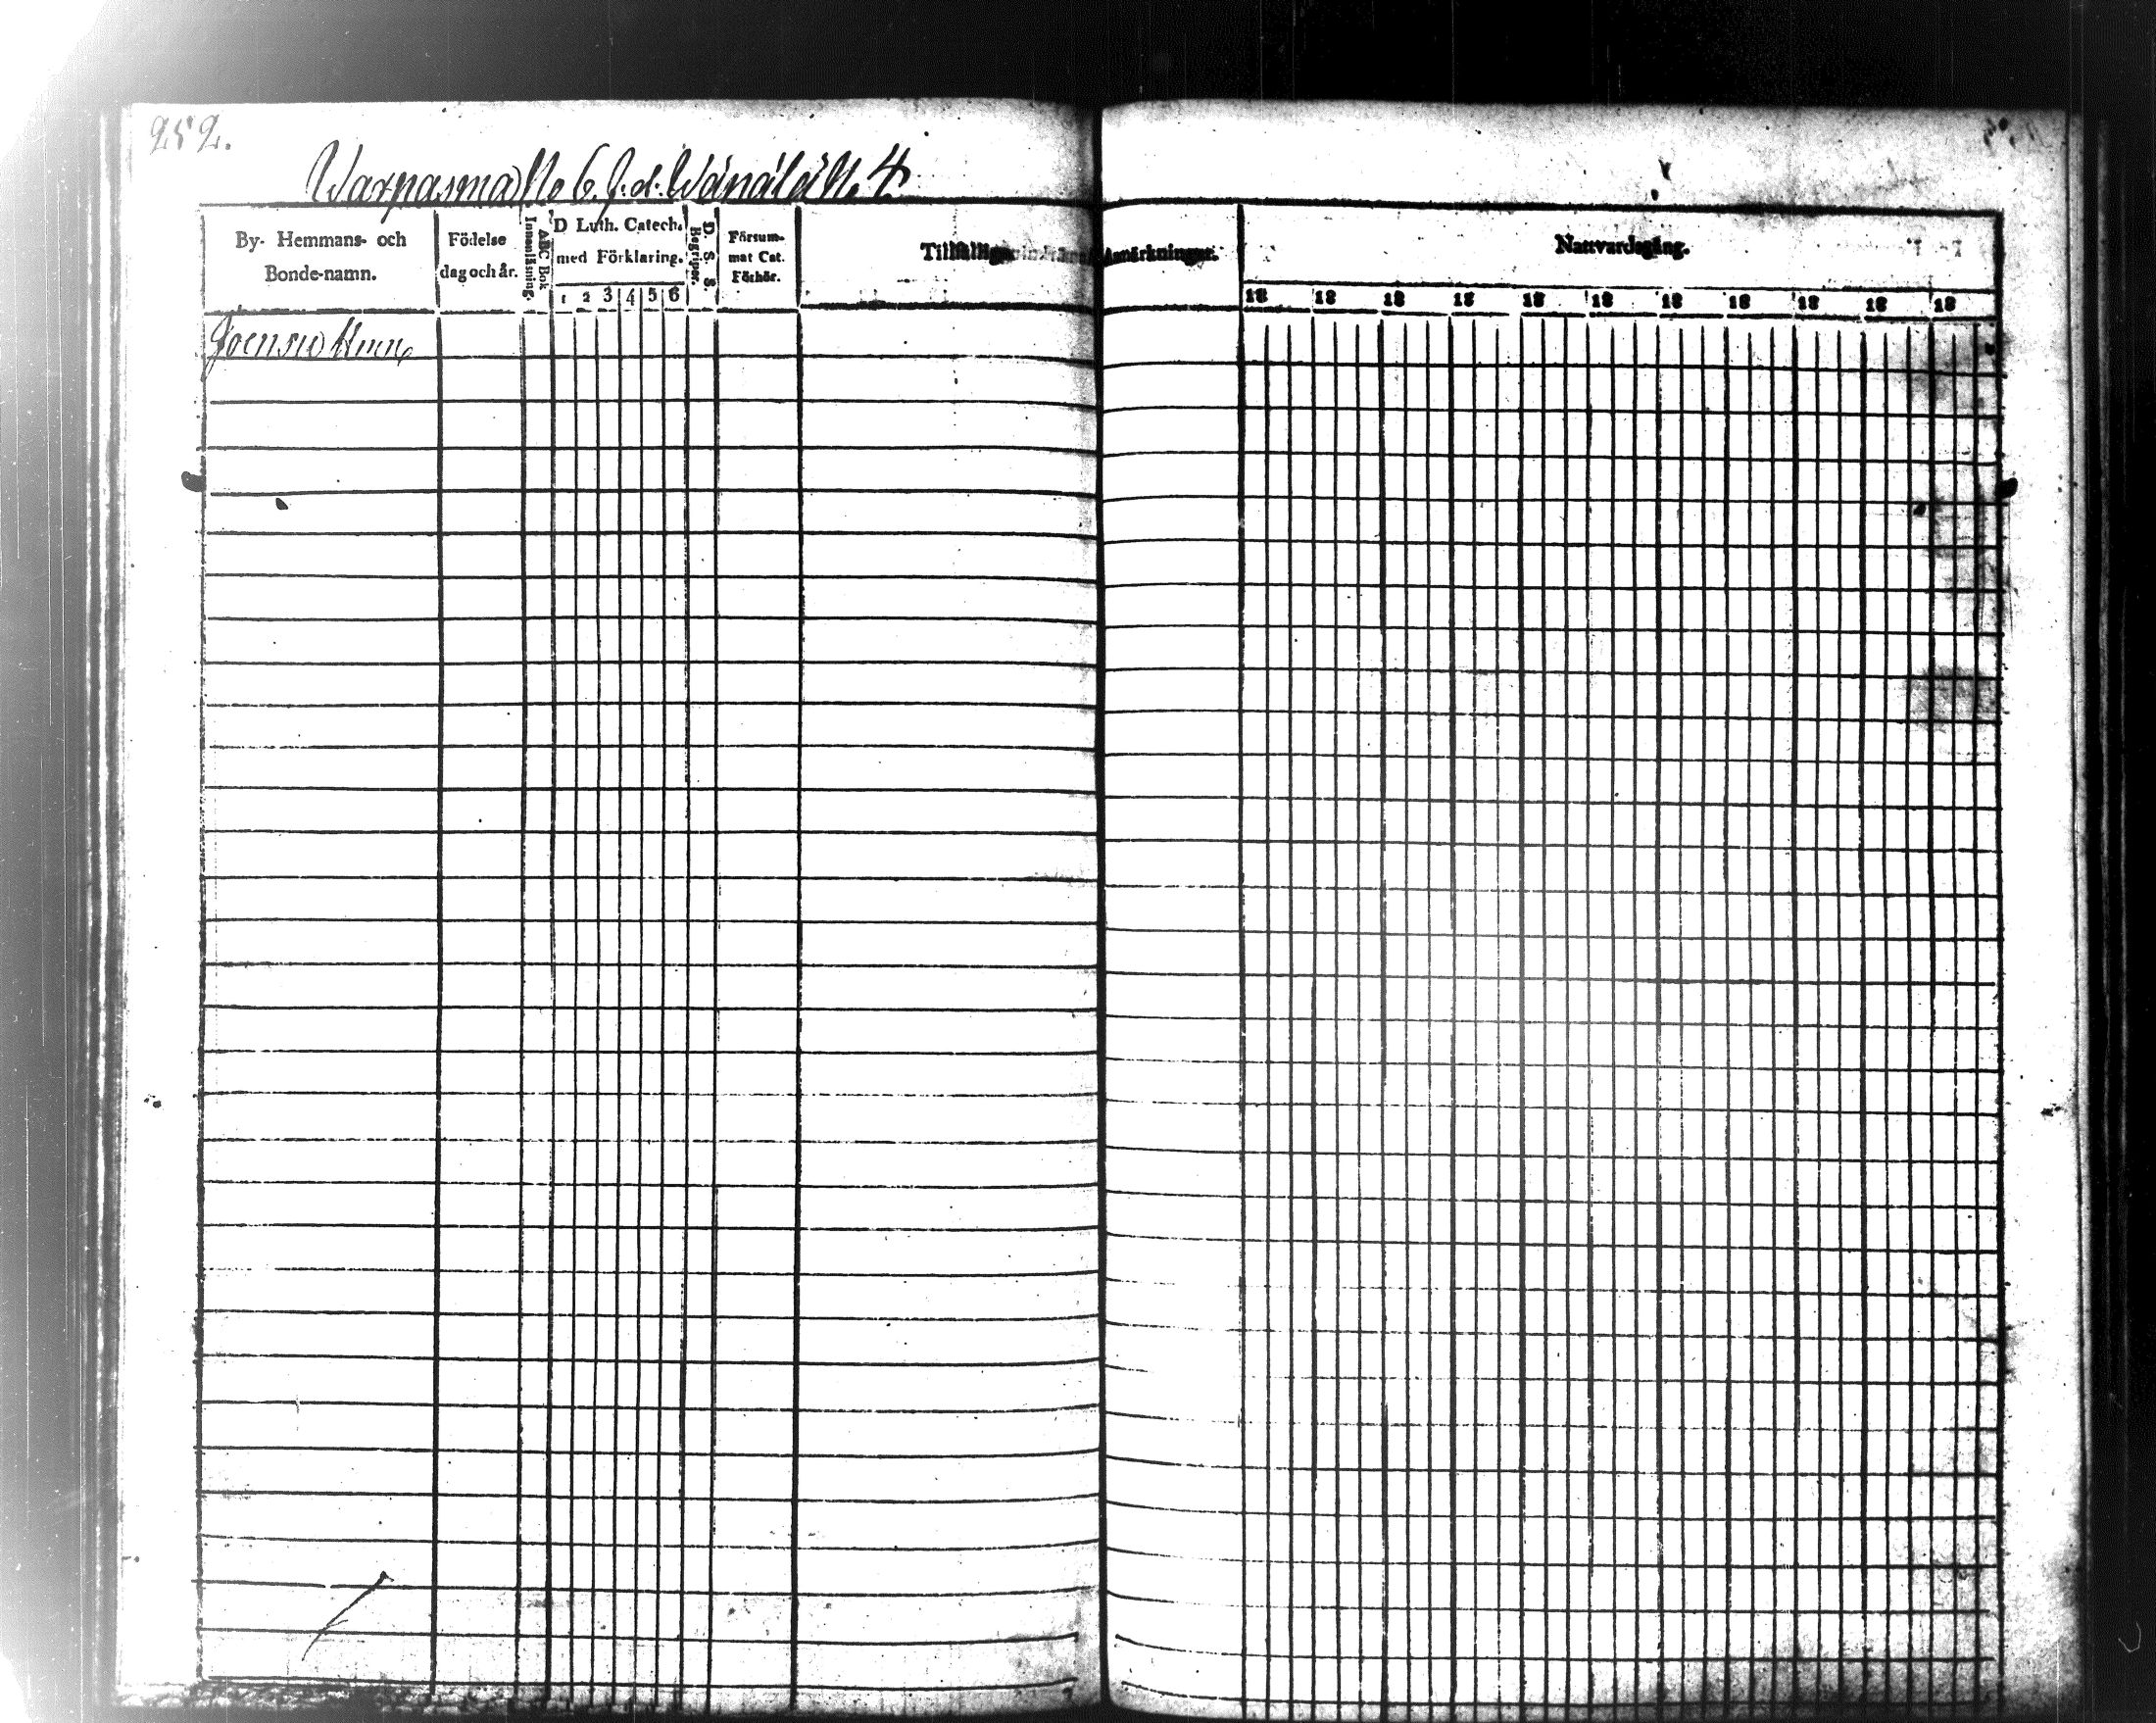 252.
Warpasmäki No 6. J. d. No 4
By- Hemmans- och
Bonde-namn.
Födelse
dag och år.
ABC Bok
Innanläsning.
D Luth. Catech.
med Förklaring.
1 2 3 4 5 6
D. S. S.
Begriper.
Försum-
mat Cat.
Förhör.
Tillfällige Anmärkningar.
Nattvardsgång.
18 18 18 18 18 18 18 18 18 18 18
Joensuu